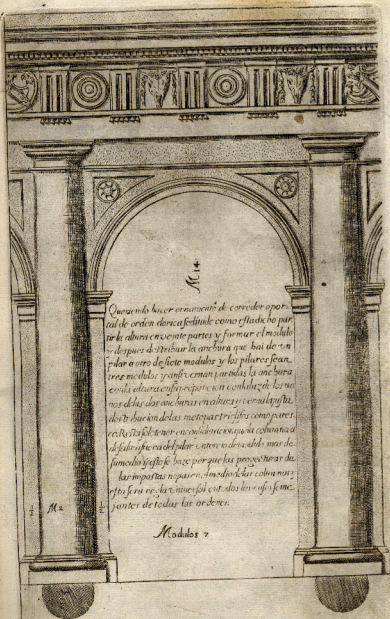 M 14
Queriendo hacer ornamento de corredor o por
tal de orden dorica se diuide como esta dicho par
tir la altura en veinte partes y formar el modulo
y despues distribuir la anchura que hai de un
pilar a otro de siete modulos y los pilares sean
tres modulos y ansi vernan partidas la anchura
con la altura en su proporcion con la luz de los va
nos de las dos anchuras en altura y verna la justa
distribucion de las metopas tresgifos como parez
ce. Resta solo tener en consideracion que la coluna a
de salir a fuera del pilar un tercio de modulo mas de
su medio y esto se haze por que las proyecturas de
las impostas no pasen el medio de las colunas
esta sera regla universal en todos los casos seme
jantes de todas las ordenes
½ M 2 ½
Modulos 7